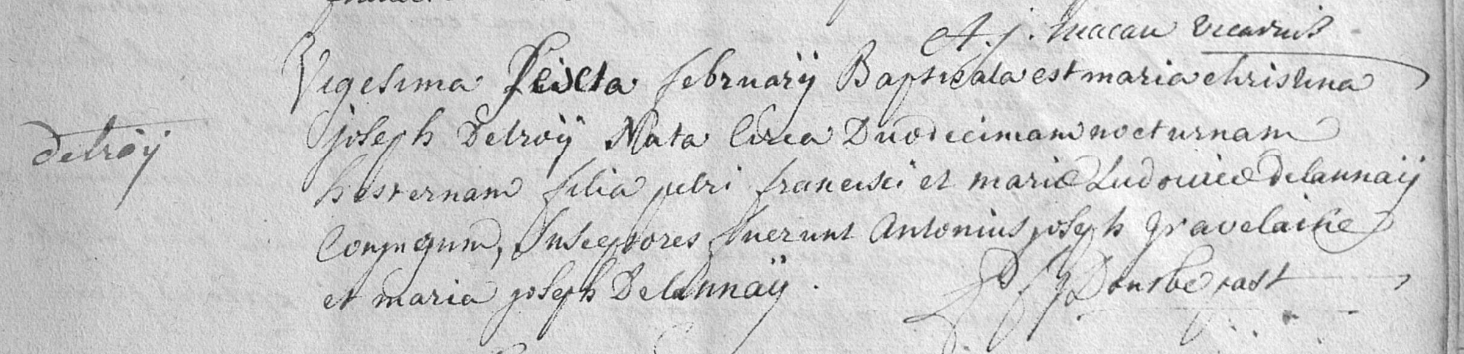 A. j. macau vicarius
Vigesima Seixta februarÿ Baptisata est maria christina
delroÿ
joseph Delroÿ Nata Circa Duodecimam nocturnam
hesternam filia petri francisci et mariæ Ludovicæ delannaÿ
Conjugum, Susceptores fuerunt Antonius joseph
et maria joseph Delannaÿ.
past